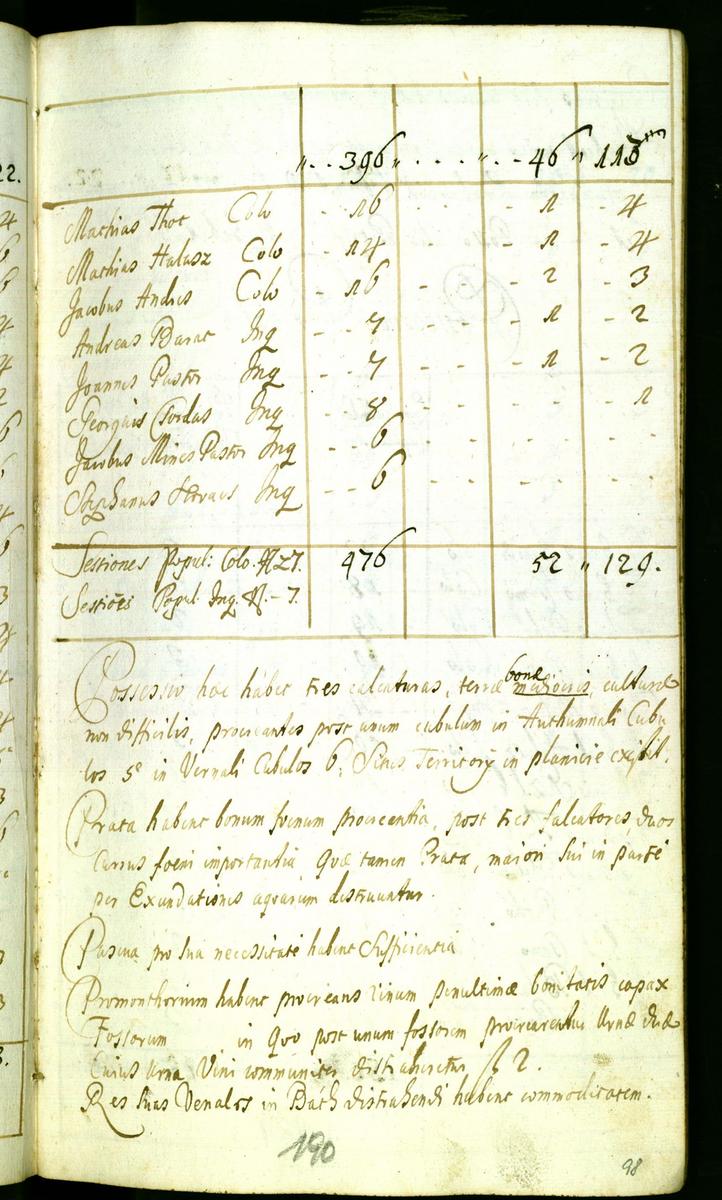 396 46 115
Mathias Thot Colo 16 1 4
Mathias Halasz Colo 14 1 4
Jacobus Andris Colo 16 2 3
Andreas Darat Inq 7 1 2
Joannes Pastor Inq 7 1 2
Georgius Csordas Inq 8 1
Jacobus Pastor Inq 6
Stephanus Inq 6
Sessiones Popul: Colo. N 27. 476 52 129.
Sessiões Popul. Inq. N. - 7.
Possessio hæc habet tres calcaturas, terræ bonæ mediocris, culturæ
non difficilis, procreantes post unum cubulum in Authumnali Cubu
los 5 in Vernali Cubulos 6, Situs Territorÿ in planicie exjstit.
Prata habent bonum fænum procreantia, post tres falcatores, duos
Currus foeni importantia Quæ tamen Prata, maiori sui in parte
per Exundationes aquarum distruuntur.
Pascua pro sua necessitate habent Sufficientia
Promonthorium habent procreans vinum penultimæ bonitatis capax
Fossorum in Quo post unum fossorem procrearentur Urnæ duæ
Cuius Urna Vini communiter distraheretur f 2.
Res suas Venales in Bath distrahendi habent commoditatem.
190
98